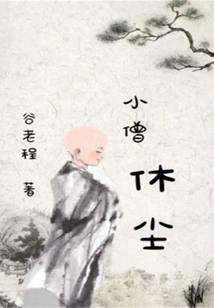 小僧
休尘
谷老程 著